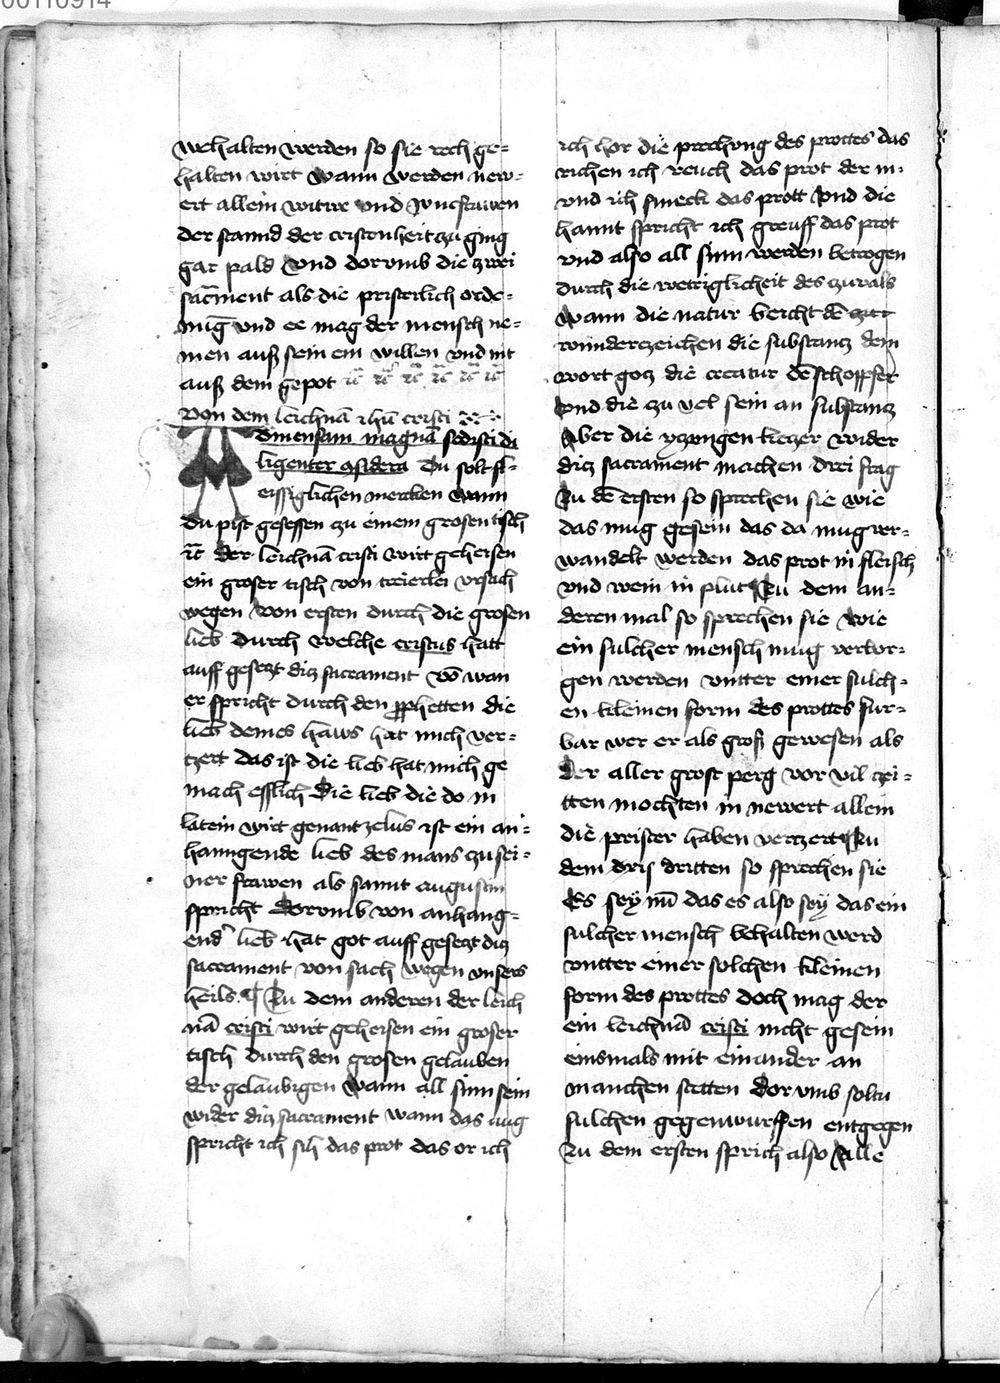 00110914
wehalten werden so sie rech ge=
halten wirt Wann werden new=
ert allein witwe vnd Junckfrawen
der stannd der cristenheit zu ging
gar pald Vnd dorvmb die zwei
sacment als die pristerlich orde=
nūg vnd ee mag der mensch ne=
men auß sein em willen vnd nit
auß dem gepot
Von dem leichnā ihū cristi
AD mensam magnā sedisti di
ligenter ɔsidera Du solt fl=
eissiglichen mercken wann
du pist gesessen zu einem grosen tisch
der leichnā cristi wirt geheisen
ein groser tisch von treierlei vrsach
wegen Von ersten durch die grosen
lieb durch welche cristus hatt
auff gesetzt ditz sacrament vō wan
er spricht durch den ꝓpheten die
lieb deines haws hat mich ver=
tzert das ist die lieb hat mich ge
mach esslich Die lieb die do in
latein wirt genant zelus ist ein an=
hanngende lieb des mans zu sei=
ner frawen als sannt augustin
spricht Dorvmb von anhang=
end lieb hat got auff gesetzt ditz
sacrament von sach wegen vnsers
heils ¶ Zu dem anderen der leich
nā cristi wirt geheisen ein groser
tisch durch den grosen gelauben
der gelaubigen Wann all sinn sein
wider ditz sacrament wann das aug
spricht ich sih das prot das or ich
ich hor die prechvng des prottes das
richen ich reuch das prot der m=
vnd ich smeck das prott Vnd die
hannt spricht ich greuff das prot
vnd also all sinn werden betrogen
durch die wetriglicheit des zuvals
Wann die natur weicht dē
wunderzeichen die substantz dem
wort gotz die creatur dē schopffer
Vnd die zu vel sein an substantz
Aber die yzungen ketzer wider
ditz sacrament machen drei frag
Zu dē ersten so sprechen sie wie
das mug gesein das da mug ver=
wandelt werden das prot in fleisch
vnd wein in plut ¶ Zu dem an=
deren mal so sprechen sie Wie
ein sulcher mensch mug verbor=
gen werden vntter einer sulch=
en kleinen form des prottes fur=
bar wer er als groß gewesen als
der aller grost perg vor vil zei=
tten mochten in newert allein
die preister haben verzert ¶ Zu
dem dris dritten so sprechen sie
Es sey nū das es also sey das ein
sulcher mensch behalten werd
vntter einer solchen kleinen
form des prottes doch mag der
ein leichnā cristi nicht gesein
einsmals mit einander an
manchen stetten Dor vmb soltu
sulchen gegenwurffen entgegen
Zu dem ersten sprich also Alle